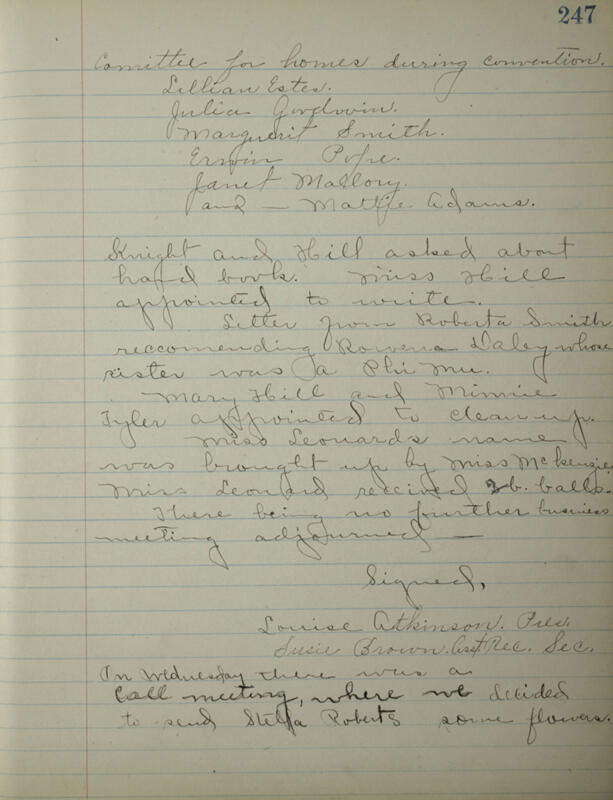 247
Comittee for homes during convention.
Lillian Estes.
Julia Goodwin.
Marguerit Smith.
Erwin Pope.
Janet Mallory.
and — Mattie Adams.
Knight and Hill asked about
hand book. Miss Hill
appointed to write.
Letter from Roberta Smith
reccomending Rowena Daley whose
sister was a Phi Mu.
Mary Hill and Minnie
Tyler appointed to clean up.
Miss Leonards name
was brought up by Miss McKenzie
Miss Leonard received 2 b. balls.
There being no further business
meeting adjourned —
Signed,
Louise Atkinson. Pres.
Susie Brown. Asst. Rec. Sec.
On Wednesday there was a
call meeting, where we decided
to send Stella Roberts some flowers.